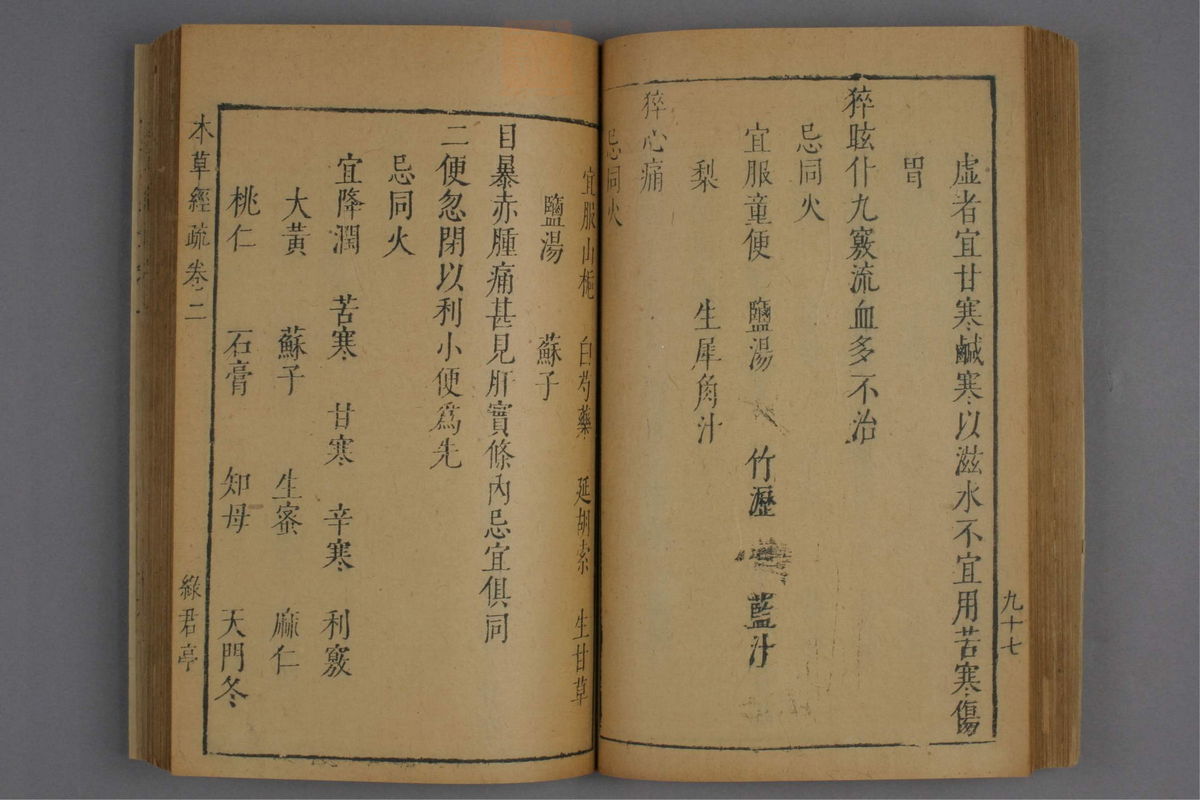 九十七
虛者宜甘寒鹹寒以滋水不宜用苦寒傷
胃
猝眩仆九竅流血多不治
忌同火
宜服童便 鹽湯 竹瀝 藍汁
梨 生犀角汁
猝心痛
忌同火
宜服山梔 白芍藥 延胡索 生甘草
鹽湯 蘇子
目暴赤腫痛甚見肝實條內忌宜俱同
二便忽閉以利小便爲先
忌同火
宜降潤 苦寒 甘寒 辛寒 利竅
大黃 蘇子 生蜜 麻仁
桃仁 石膏 知母 天門冬
本草經疏卷二 綠君亭